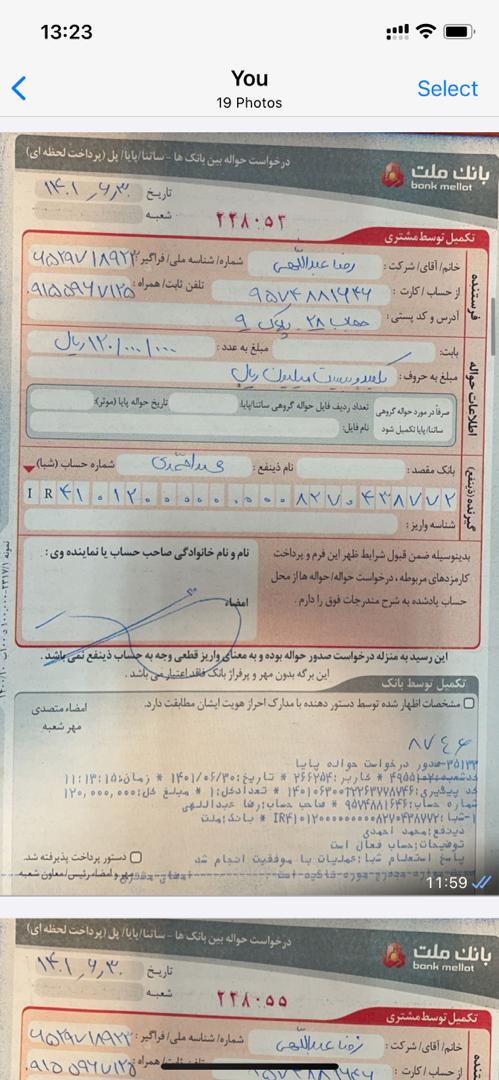 13:23
You
19 Photos
Select
درخواست حواله بین بانک ها - ساتنا/پایا/ پل (پرداخت لحظه ای)
بانک ملت
bank mellat
تاریخ ۱۴۰۱,۶,۳۰
شعبه
۲۲۸۰۵۳
تکمیل توسط مشتری
فرستنده
خانم/آقای/ شرکت: رضا عبداللهی شماره/ شناسه ملی/ فراگیر:
از حساب/ کارت: ۹۵۷۴۸۸۱۶۴۶ تلفن ثابت/ همراه: ۰۹۱۵۵۹۶۷۱۲۵
آدرس و کد پستی:
اطلاعات حواله
بابت: مبلغ به عدد: ۱۲۰/۰۰۰/۰۰۰ ریال
مبلغ به حروف: یکصد و بیست میلیون ریال
صرفاً در مورد حواله گروهی ساتنا/پایا تکمیل شود
تعداد ردیف فایل حواله گروهی ساتنا/پایا: تاریخ حواله پایا (موثر):
نام فایل:
گیرنده (ذینفع)
بانک مقصد: نام ذینفع: محمد احمدی شماره حساب (شبا):
IR ۴۱۰۱۲۰۰۰۰۰۰۰۰۰۸۲۷۰۴۳۸۷۷۲
شناسه واریز:
بدینوسیله ضمن قبول شرایط ظهر این فرم و پرداخت
کارمزدهای مربوطه، درخواست حواله/ حواله ها از محل
حساب یادشده به شرح مندرجات فوق را دارم.
نام و نام خانوادگی صاحب حساب یا نماینده وی:
امضاء
این رسید به منزله درخواست صدور حواله بوده و به معنای واریز قطعی وجه به حساب ذینفع نمی باشد.
این برگه بدون مهر و پرفراژ بانک فاقد اعتبار می باشد.
تکمیل توسط بانک
مشخصات اظهار شده توسط دستور دهنده با مدارک احراز هویت ایشان مطابقت دارد.
امضاء متصدی
مهر شعبه
۸۷۴۶
۳۵۱۳۳-صدور درخواست حواله پایا
کاربر:۲۶۶۲۵۴ * تاریخ:۱۴۰۱/۰۶/۳۰ * زمان:۱۱:۱۳:۱۵
تعدادکل:۱ * مبلغ کل:۱۲۰,۰۰۰,۰۰۰
شماره حساب:۹۵۷۴۸۸۱۶۴۶ * صاحب حساب:رضا عبداللهی
۱-شبا:IR۴۱۰۱۲۰۰۰۰۰۰۰۰۰۸۲۷۰۴۳۸۷۷۲ * بانک:ملت
ذینفع:محمد احمدی
توضیحات:حساب فعال است
پاسخ استعلام شبا:عملیات با موفقیت انجام شد
دستور پرداخت پذیرفته شد.
مهر و امضاء رئیس/ معاون شعبه
11:59
درخواست حواله بین بانک ها - ساتنا/پایا/ پل (پرداخت لحظه ای)
بانک ملت
bank mellat
تاریخ ۱۴۰۱,۶,۳۰
شعبه
۲۲۸۰۵۵
تکمیل توسط مشتری
خانم/آقای/ شرکت: رضا عبداللهی شماره/ شناسه ملی/ فراگیر: